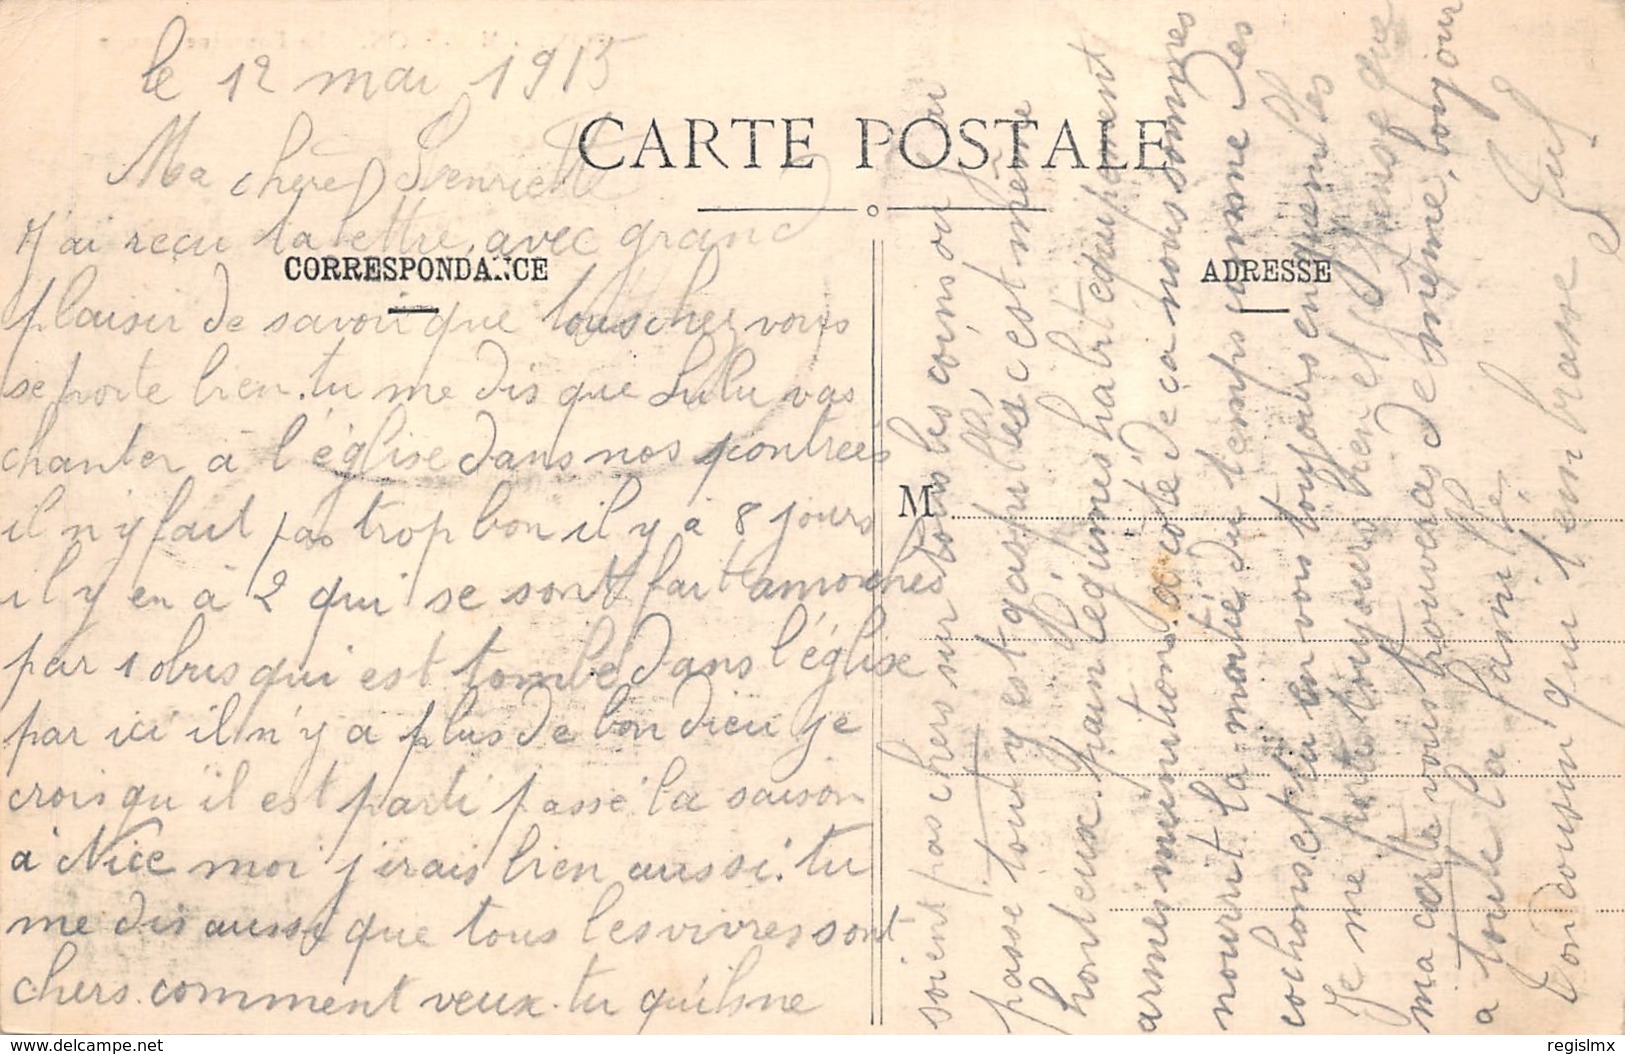 le 12 mai 1915
CARTE POSTALE
Ma chère Henriette
J'ai reçu ta lettre avec grand
CORRESPONDANCE
plaisir de savoir que tous chez vous
se porte bien. tu me dis que Lulu vas
chanter à l'église dans nos contrées
il n'y fait pas trop bon il y à 8 jours
il y en à 2 qui se sont fait amochés
par 1 obus qui est tombé dans l'église
par ici il n'y a plus de bon dieu je
crois qu'il est parti passé la saison
à Nice moi j'irais bien aussi. tu
me dis aussi que tous les vivres sont
chers. comment veux tu qu'ils ne
ADRESSE
M
soient pas chers sur tous les coins ou j'ai
passé tout y est gaspillés c'est même
honteux. pain légumes habits équipement
armes munitions. a coté de ça nous sommes
nourrit la moitié du temps comme des
cochons et tu en vois toujours en
Je me porte toujours bien et j'espère que
ma carte vous trouveras de même, bonjour
a toute la famille.
Ton cousin qui t'embrasse
regislmx
www.delcampe.net